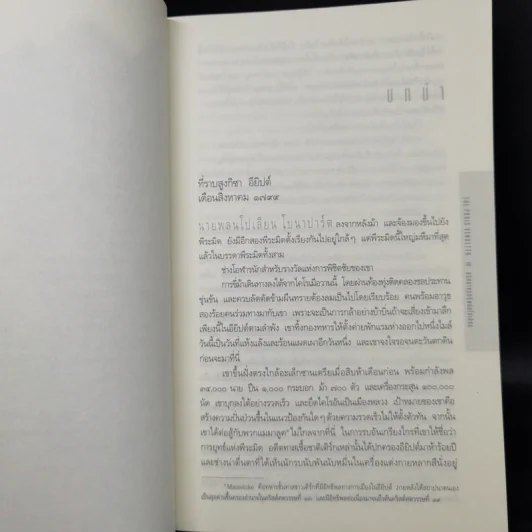 บทนำ
ที่ราบสูงกิซา อียิปต์
เดือนสิงหาคม ๑๗๙๙
นายพลนโปเลียน โบนาปาร์ต ลงจากหลังม้า และจ้องมองขึ้นไปยัง
พีระมิด ยังมีอีกสองพีระมิดตั้งเรียงกันไปอยู่ใกล้ๆ แต่พีระมิดนี้ใหญ่มหึมาที่สุด
แล้วในบรรดาพีระมิดทั้งสาม
ช่างโอฬารนักสำหรับรางวัลแห่งการพิชิตชัยของเขา
การขี่ม้าเดินทางลงใต้จากไคโรเมื่อวานนี้ โดยผ่านท้องทุ่งติดคลองชลประทาน
ขุ่นข้น และควบลัดตัดข้ามผืนทรายต้องลมเป็นไปโดยเรียบร้อย คนพร้อมอาวุธ
สองร้อยคนร่วมทางมากับเขา เพราะจะเป็นการกล้าอย่างบ้าบิ่นถ้าจะเสี่ยงเข้ามาลึก
เพียงนี้ในอียิปต์ตามลำพัง เขาทิ้งกองทหารให้ตั้งค่ายพักแรมห่างออกไปหนึ่งไมล์
วันนี้เป็นวันที่แห้งแล้งและร้อนแผดเผาอีกวันหนึ่ง และเขาจงใจรอจนตะวันตกดิน
ก่อนจะมาที่นี่
เขาขึ้นฝั่งตรงใกล้อะเล็กซานเดรียเมื่อสิบห้าเดือนก่อน พร้อมกำลังพล
๓๔,๐๐๐ นาย ปืน ๑,๐๐๐ กระบอก ม้า ๗๐๐ ตัว และเครื่องกระสุน ๑๐๐,๐๐๐
นัด เขาบุกลงใต้อย่างรวดเร็ว และยึดไคโรอันเป็นเมืองหลวง เป้าหมายของเขาคือ
สร้างความปั่นป่วนขึ้นในแนวป้องกันใดๆ ด้วยความรวดเร็วไม่ให้ตั้งตัวทัน จากนั้น
เขาได้ต่อสู้กับพวกแมมาลูค* ไม่ไกลจากที่นี่ ในการรบอันเกรียงไกรที่เขาให้ชื่อว่า
การยุทธ์แห่งพีระมิด อดีตทาสเชื้อชาติเติร์กเหล่านั้นได้ปกครองอียิปต์มาห้าร้อยปี
และช่างน่าตื่นตาที่ได้เห็นนักรบนับพันนับหมื่นในเครื่องแต่งกายหลากสีนั่งอยู่